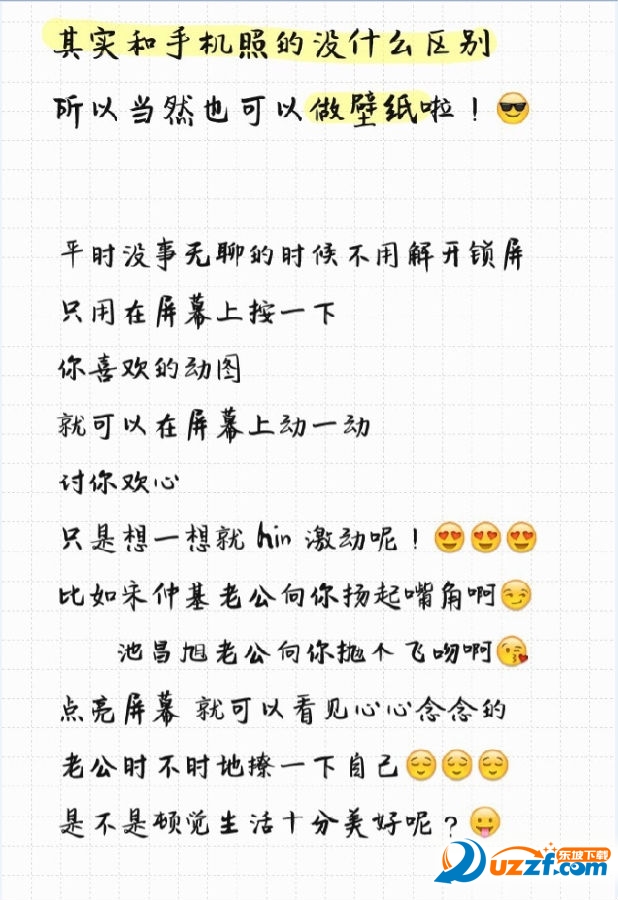 其实和手机照的没什么区别
所以当然也可以做壁纸啦！😎
平时没事无聊的时候不用解开锁屏
只用在屏幕上按一下
你喜欢的动图
就可以在屏幕上动一动
讨你欢心
只是想一想就hin激动呢！😍😍😍
比如宋仲基老公向你扬起嘴角啊😏
池昌旭老公向你抛个飞吻啊😘
点亮屏幕 就可以看见心心念念的
老公时不时地撩一下自己😌😌😌
是不是顿觉生活十分美好呢？😛
东坡下载
uzzf.com